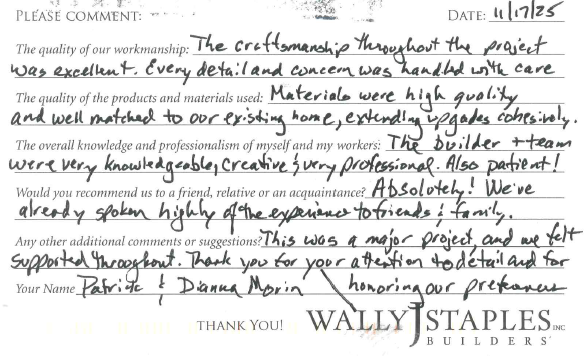 PLEASE COMMENT: DATE: 11/17/25
The quality of our workmanship: The craftsmanship throughout the project
was excellent. Every detail and concern was handled with care
The quality of the products and materials used: Materials were high quality
and well matched to our existing home, extending upgades cohesively.
The overall knowledge and professionalism of myself and my workers: The builder + team
were very knowledgeable, creative & very professional. Also patient!
Would you recommend us to a friend, relative or an acquaintance? Absolutely! We've
already spoken highly of the experience to friends & family.
Any other additional comments or suggestions? This was a major project, and we felt
supported throughout. Thank you for your attention to detail and for
Your Name Patrick & Dianna Morin honoring our preferences
THANK YOU! WALLY J STAPLES INC
BUILDERS